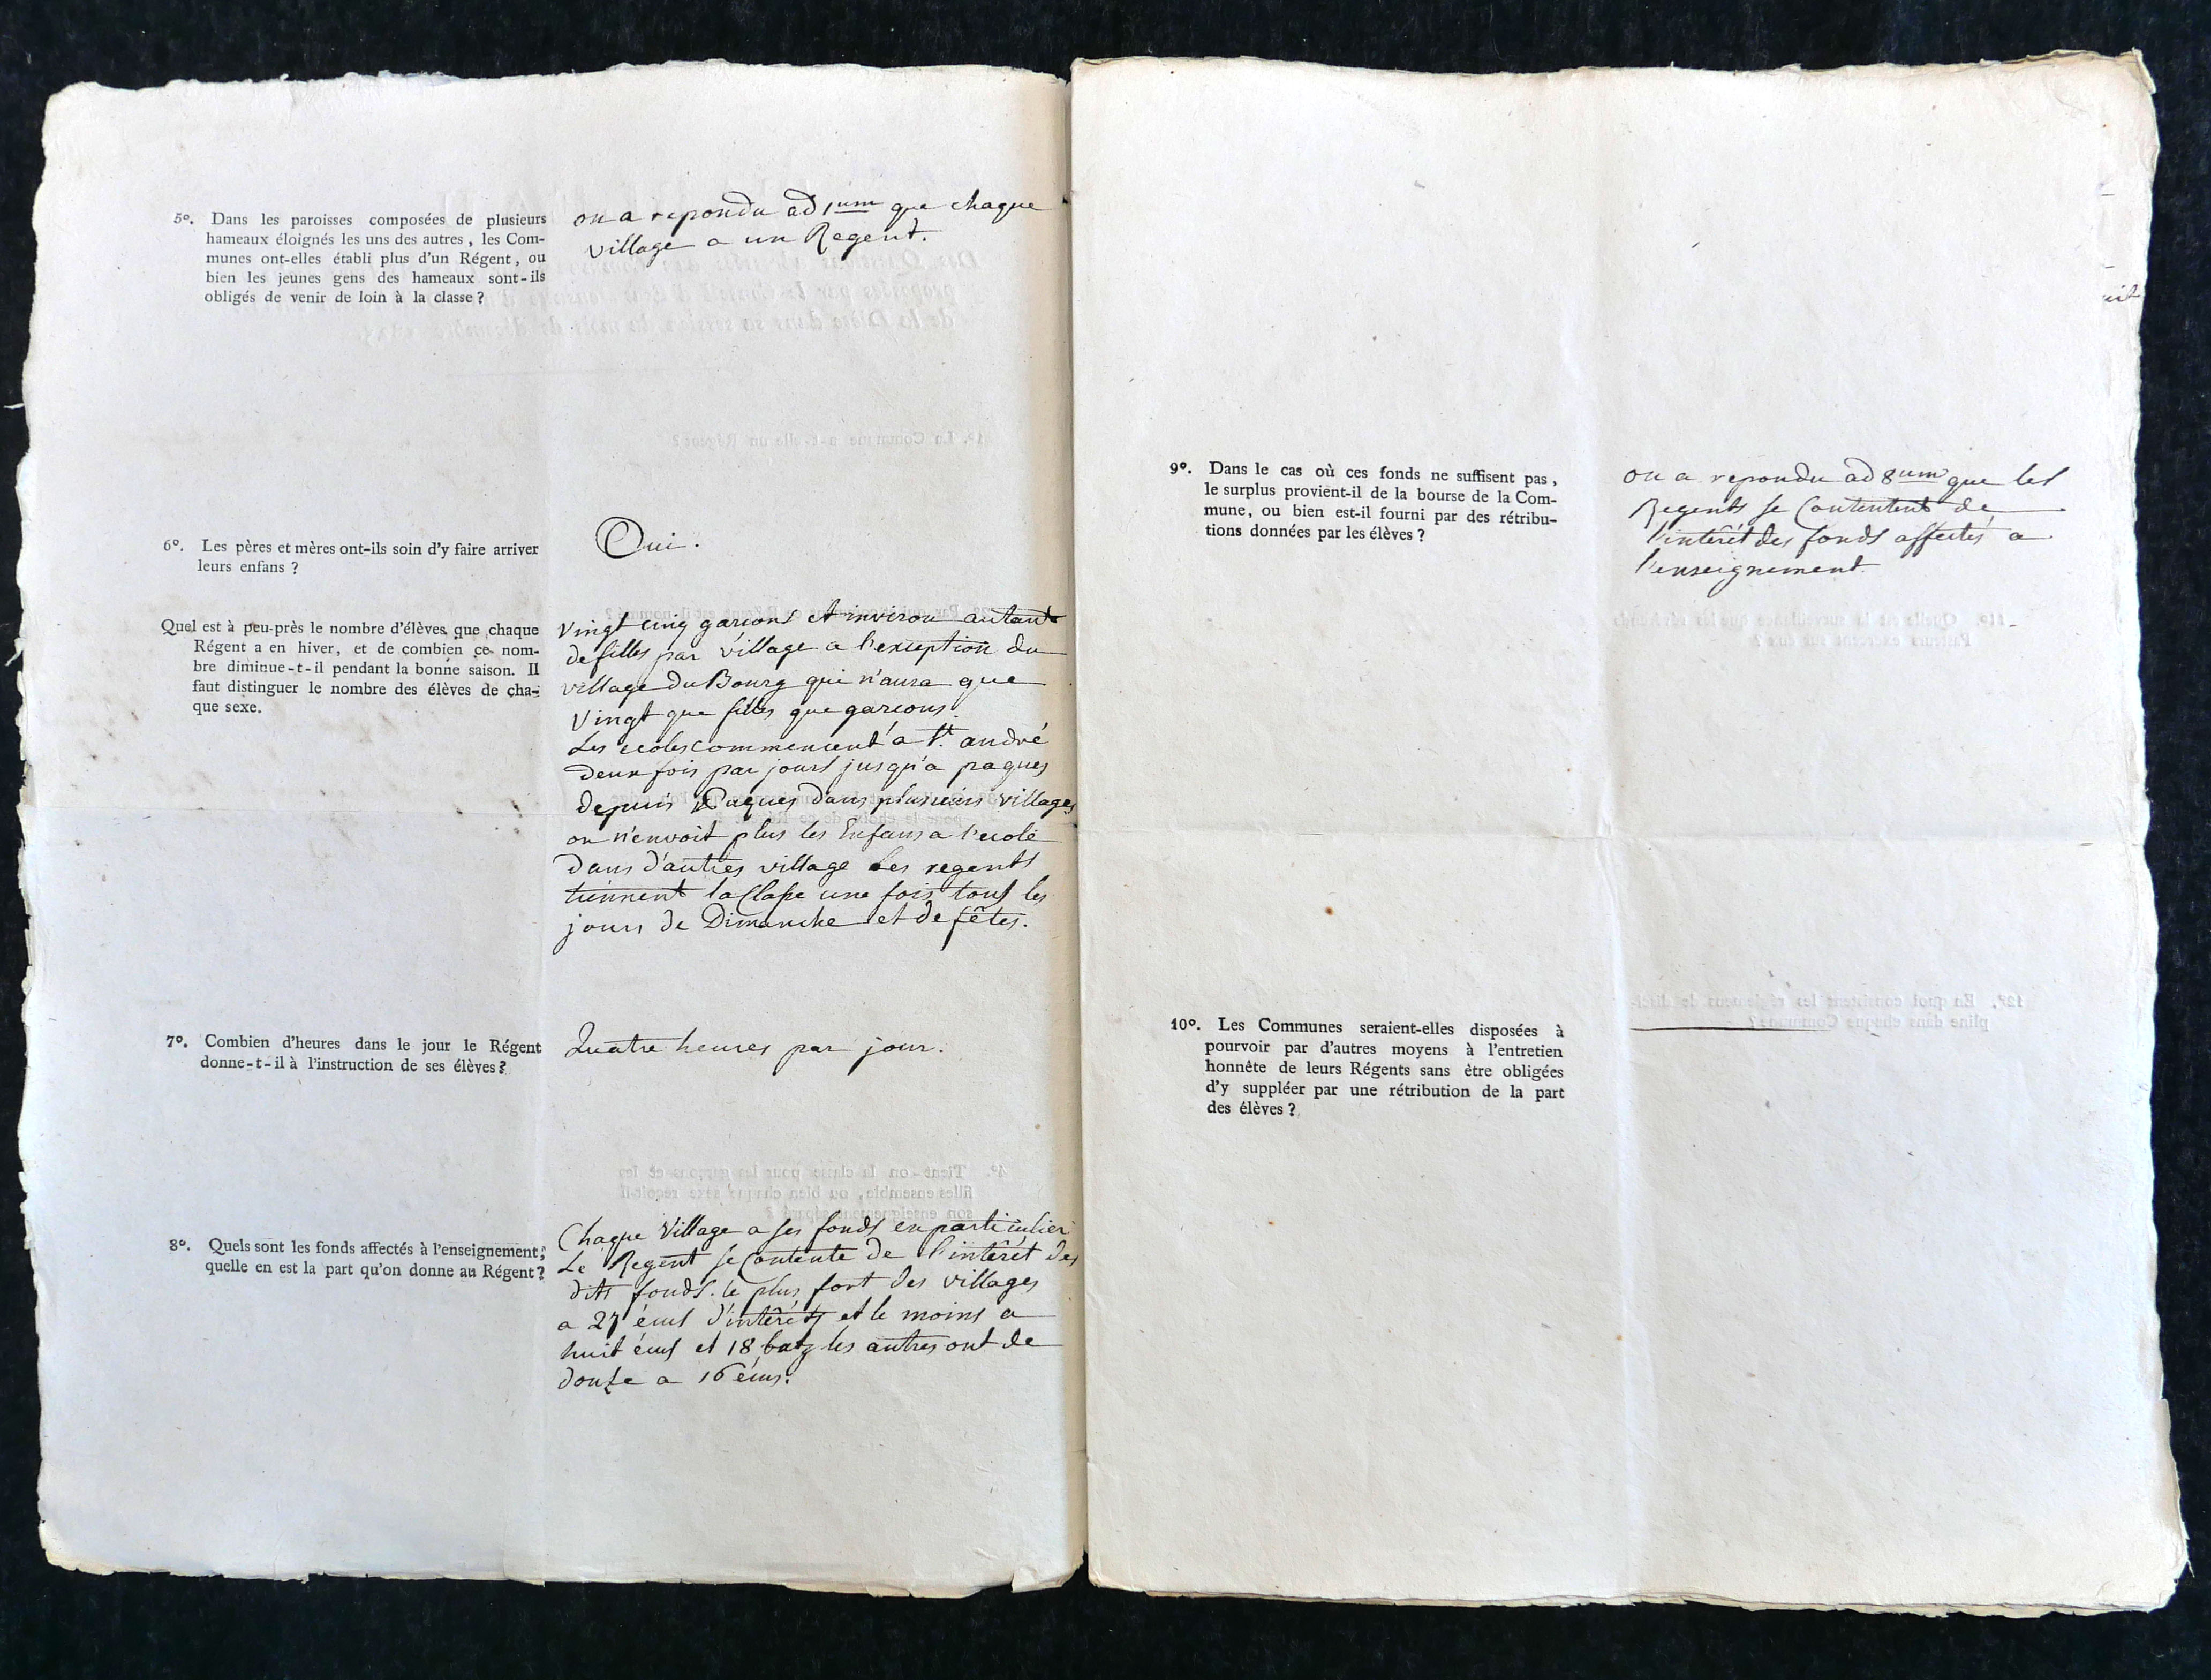 5º. Dans les paroisses composées de plusieurs
hameaux éloignés les uns des autres, les Com-
munes ont-elles établi plus d'un Régent, ou
bien les jeunes gens des hameaux sont-ils
obligés de venir de loin à la classe ?
on a repondu ad 1um que chaque
village a un Regent.
6º. Les pères et mères ont-ils soin d'y faire arriver
leurs enfans ?
Oui.
Quel est à peu-près le nombre d'élèves que chaque
Régent a en hiver, et de combien ce nom-
bre diminue-t-il pendant la bonne saison. Il
faut distinguer le nombre des élèves de cha-
que sexe.
Vingt cinq garçons et inviron autant
de filles par village a l'exception du
village du Bourg qui n'aura que
Vingt que filles que garcons.
Les ecoles commencent a St. andré
deux fois par jours jusqu'a paques
depuis Paques dans plusieurs villages
on n'envoit plus les Enfans a l'ecole
dans d'autres village Les regents
tiennent la Classe une fois tous les
jours de Dimanche et de fêtes.
7º. Combien d'heures dans le jour le Régent
donne-t-il à l'instruction de ses élèves ?
Quatre heures par jour.
8º. Quels sont les fonds affectés à l'enseignement ;
quelle en est la part qu'on donne au Régent ?
Chaque Village a ses fonds en particulier
Le Regent se Contente de l'intérêt des
dits fonds. le plus fort des villages
a 27 écus d'intérêts et le moins a
huit écus et 18 batz les autres ont de
douze a 16 écus.
9º. Dans le cas où ces fonds ne suffisent pas,
le surplus provient-il de la bourse de la Com-
mune, ou bien est-il fourni par des rétribu-
tions données par les élèves ?
on a repondu ad 8um que les
Regents se Contentent de
l'intérêt des fonds affectés a
l'enseignement
10º. Les Communes seraient-elles disposées à
pourvoir par d'autres moyens à l'entretien
honnête de leurs Régents sans être obligées
d'y suppléer par une rétribution de la part
des élèves ?